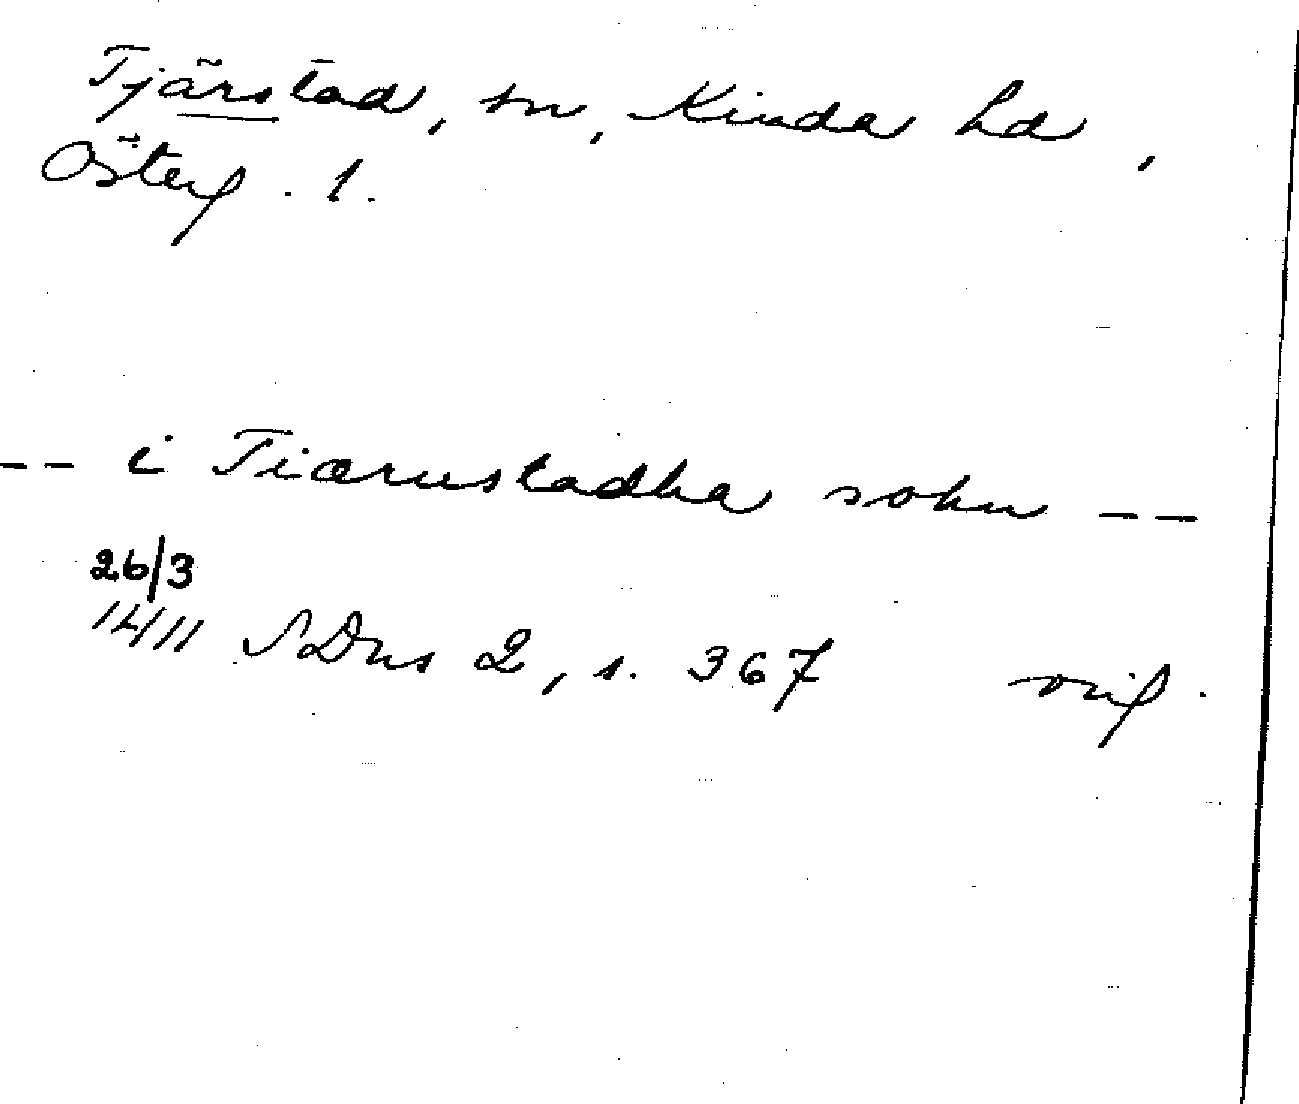 Tjärstad, sn, Kinda hd,
Österg. l.
-- i Tiærustadha sokn --
26/3
1411 SDns 2, s. 367 orig.